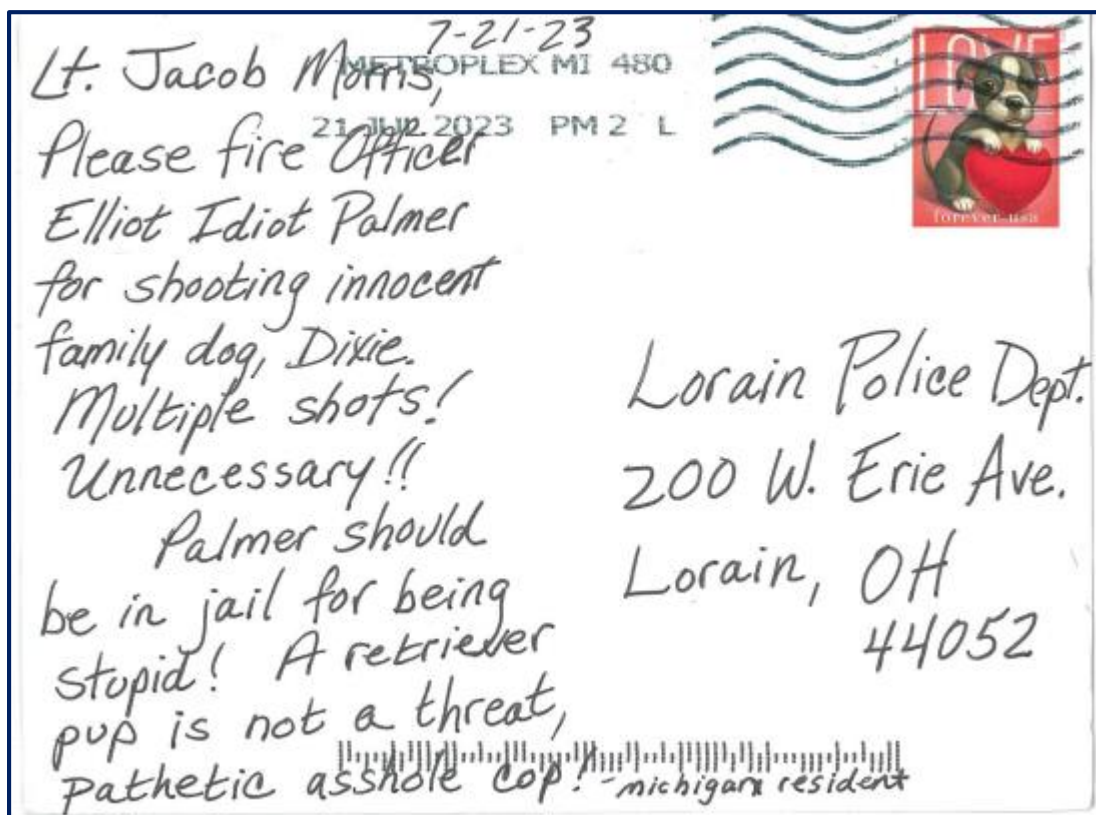 7-21-23
METROPLEX MI 480
21 JUL 2023 PM 2 L
LOVE
forever-usa
Lt. Jacob Morris,
Please fire Officer
Elliot Idiot Palmer
for shooting innocent
family dog, Dixie.
Multiple shots!
Unnecessary!!
Palmer should
be in jail for being
stupid! A retriever
pup is not a threat,
pathetic asshole cop!
-michigan resident
Lorain Police Dept.
200 W. Erie Ave.
Lorain, OH
44052